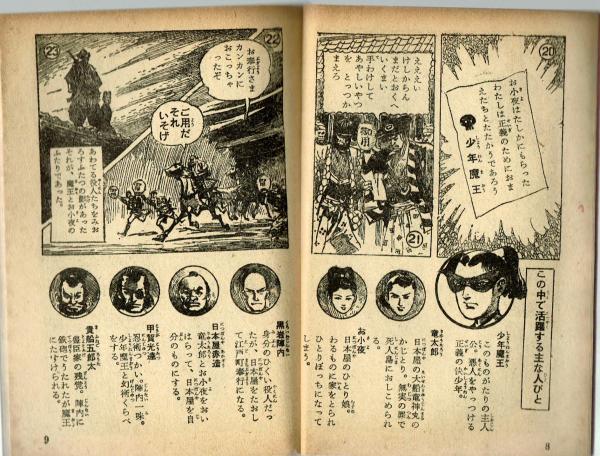 ⑳
お小夜はたしかにもらった
わたしは正義のためにおま
えだちとたたかうであろう
少年魔王
えええい
けしからん
まだとおくへ
いくまい
手わけして
あやしいやつ
を とっつか
まえろ
御用
㉑
㉒
お奉行さま
カンカンに
おこっちゃ
ったぞ
ご用だ
それ
いそげ
㉓
あわてる役人たちをみお
ろすふたつの影があった
それが、魔王とお小夜の
ふたりであった。
この中で活躍する主な人びと
少年魔王
このものがたりの主人
公。悪人をやっつける
正義の快少年。
竜太郎
日本屋の大船竜神丸の
かじとり。無実の罪で
死人島におしこめられ
お小夜
日本屋のひとり娘。
わるものに家をとられ
ひとりぼっちになって
しまう。
黒岩陣内
身分のひくい役人だっ
たが、日本屋をたおし
て江戸町奉行になる。
日本屋赤造
竜太郎とお小夜をおい
はらって、日本屋を自
分のものにする。
甲賀光達
忍術つかい。陣内一味。
少年魔王と幻術くらべ
をする。
貴船五郎太
豊臣家の残党。陣内に
鉄砲でうたれたが魔王
にたすけられる。
8
9